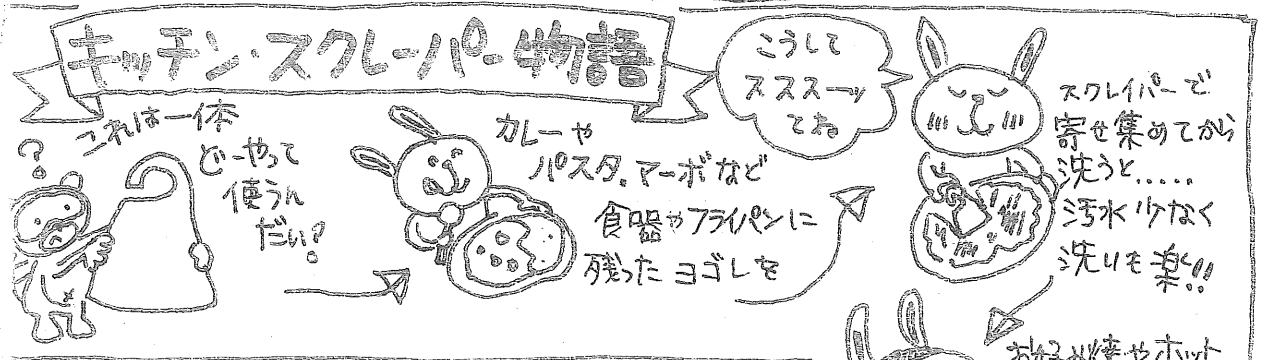 キッチン・スクレーパー物語
これは一体
どーやって
使うん
だい?
?
カレーや
パスタ、マーボなど
食器やフライパンに
残ったヨゴレを
こうして
スススーッ
てね
スクレイパーで
寄せ集めてから
洗うと.....
汚水少なく
洗いも楽!!
お好み焼やホット